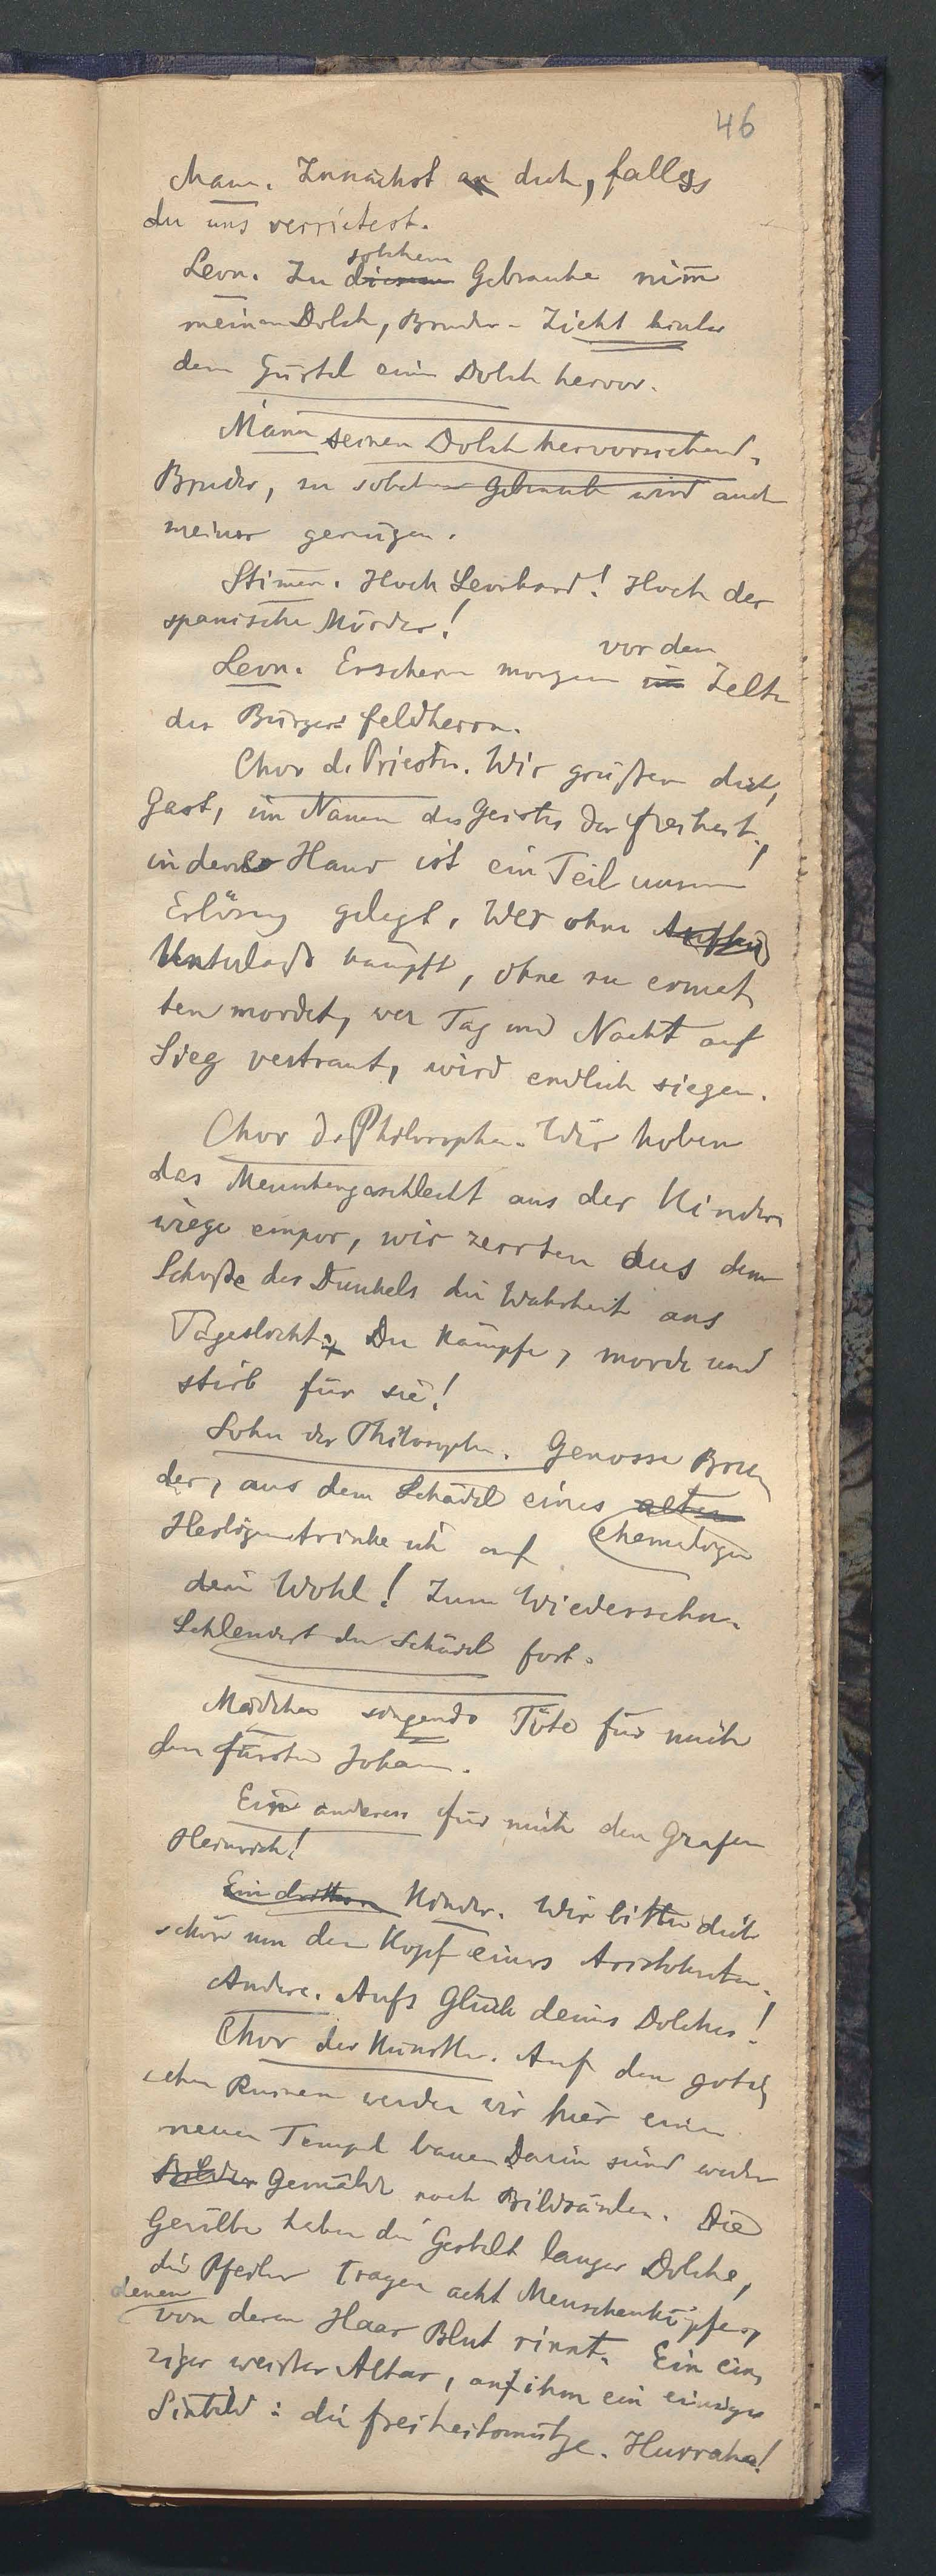 46
Mann. Zunächst an dich, falls
du uns verrietest.
Leon. Zu diesem solchem Gebrauche nim̅
meinen Dolch, Bruder - Zieht hinter
dem Gürtel einen Dolch hervor.
Mann seinen Dolch hervorziehend.
Bruder, zu solchem Gebrauch wird auch
meiner genügen.
Stim̅en. Hoch Leonhard! Hoch der
spanische Mörder!
vor dem
Leon. Erscheine morgen im Zelte
des Bürgerfeldherrn.
Chor d. Priester. Wir grüßen dich,
Gast, im Namen des Geistes der Freiheit,
in deine Hand ist ein Teil unserer
Erlösung gelegt. Wer ohne
Unterlaß kämpft, ohne zu ermat
ten mordet, wer Tag und Nacht auf
Sieg vertraut, wird endlich siegen.
Chor d. Philosophen. Wir hoben
das Menschengeschlecht aus der Kinder
wiege empor, wir zerrten aus dem
Schoße des Dunkels die Wahrheit ans
Tageslicht. Du kämpfe, morde und
stirb für sie!
Sohn des Philosophen. Genosse Bru
der, aus dem Schädel eines alten
ehemaligen
Heiligen trinke ich auf
dein Wohl! Zum Wiedersehn.
Schleudert den Schädel fort.
Mädchen singend Töte für mich
den Fürsten Johann.
Ein anderes für mich den Grafen
Heinrich!
Ein drittes Kinder. Wir bitten dich
schön um den Kopf eines Aristokraten.
Andere. Aufs Glück deines Dolches!
Chor der Künstler. Auf den goti
schen Ruinen werden wir hier einen
neuen Tempel bauen Darin sind weder
Bilder Gemälde noch Bildsäulen. Die
Gewölbe haben die Gestalt langer Dolche,
die Pfeiler tragen acht Menschenköpfe,
denen
von deren Haar Blut rinnt. Ein ein
ziger weißer Altar, auf ihm ein einziges
Sinbild: die Freiheitsmütze. Hurraha!